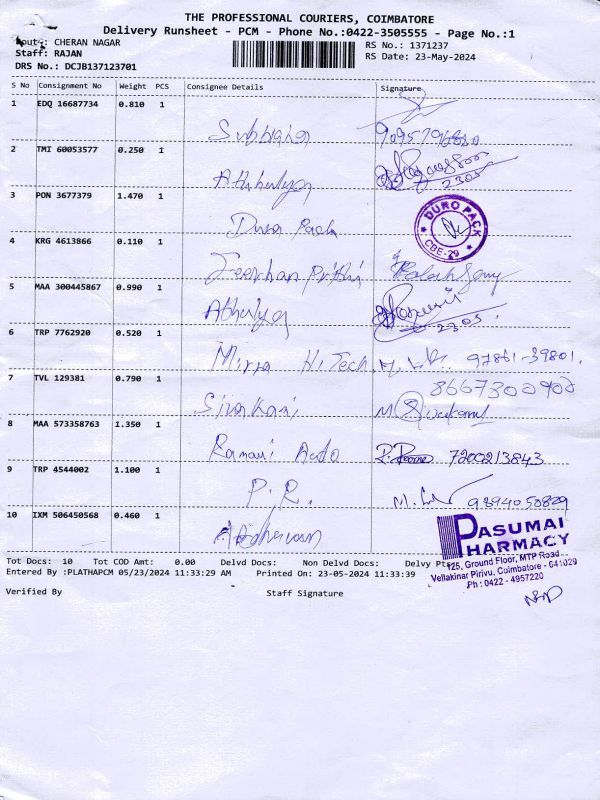 THE PROFESSIONAL COURIERS, COIMBATORE
Delivery Runsheet - PCM - Phone No.:0422-3505555 - Page No.:1
Route: CHERAN NAGAR RS No.: 1371237
Staff: RAJAN RS Date: 23-May-2024
DRS No.: DCJB137123701
S No Consignment No Weight PCS Consignee Details Signature
1 EDQ 16687734 0.810 1
2 TMI 60053577 0.250 1
Athulya 2305
3 PON 3677379 1.470 1
Duro Pack DURO PACK CBE-29
4 KRG 4613866 0.110 1
5 MAA 300445867 0.990 1
Athulya 2305
6 TRP 7762920 0.520 1
Mirra Hi.Tech 97861-39801
7 TVL 129381 0.790 1
8667300900
8 MAA 573358763 1.350 1
Ramani Auto 7200213843
9 TRP 4544002 1.100 1
P.R. 9894050829
10 IXM 506450568 0.460 1
PASUMAI PHARMACY
125, Ground Floor, MTP Road
Vellakinar Pirivu, Coimbatore - 641029
Ph : 0422 - 4957220
Tot Docs: 10 Tot COD Amt: 0.00 Delvd Docs: Non Delvd Docs: Delvy Pts:
Entered By :PLATHAPCM 05/23/2024 11:33:29 AM Printed On: 23-05-2024 11:33:39
Verified By Staff Signature